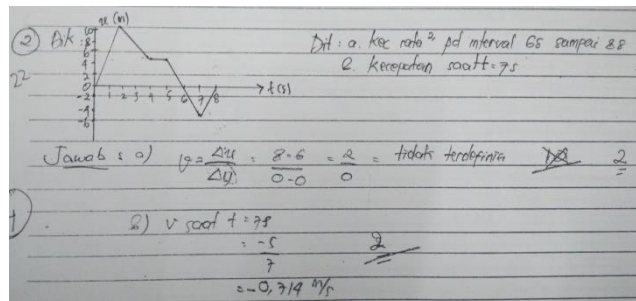 x (m)
② Dik:
10
8
6
4
2
0
-2
-4
-6
1 2 3 4 5 6 7 8
t (s)
Dit : a. kec rata² pd interval 6s sampai 8s
b. kecepatan saat t = 7s
22
Jawab : a)
= 8-6 / 0-0 = 2 / 0 = tidak terdefinisi
2
b) v saat t = 7s
= -5 / 7
2
= -0,714 m/s